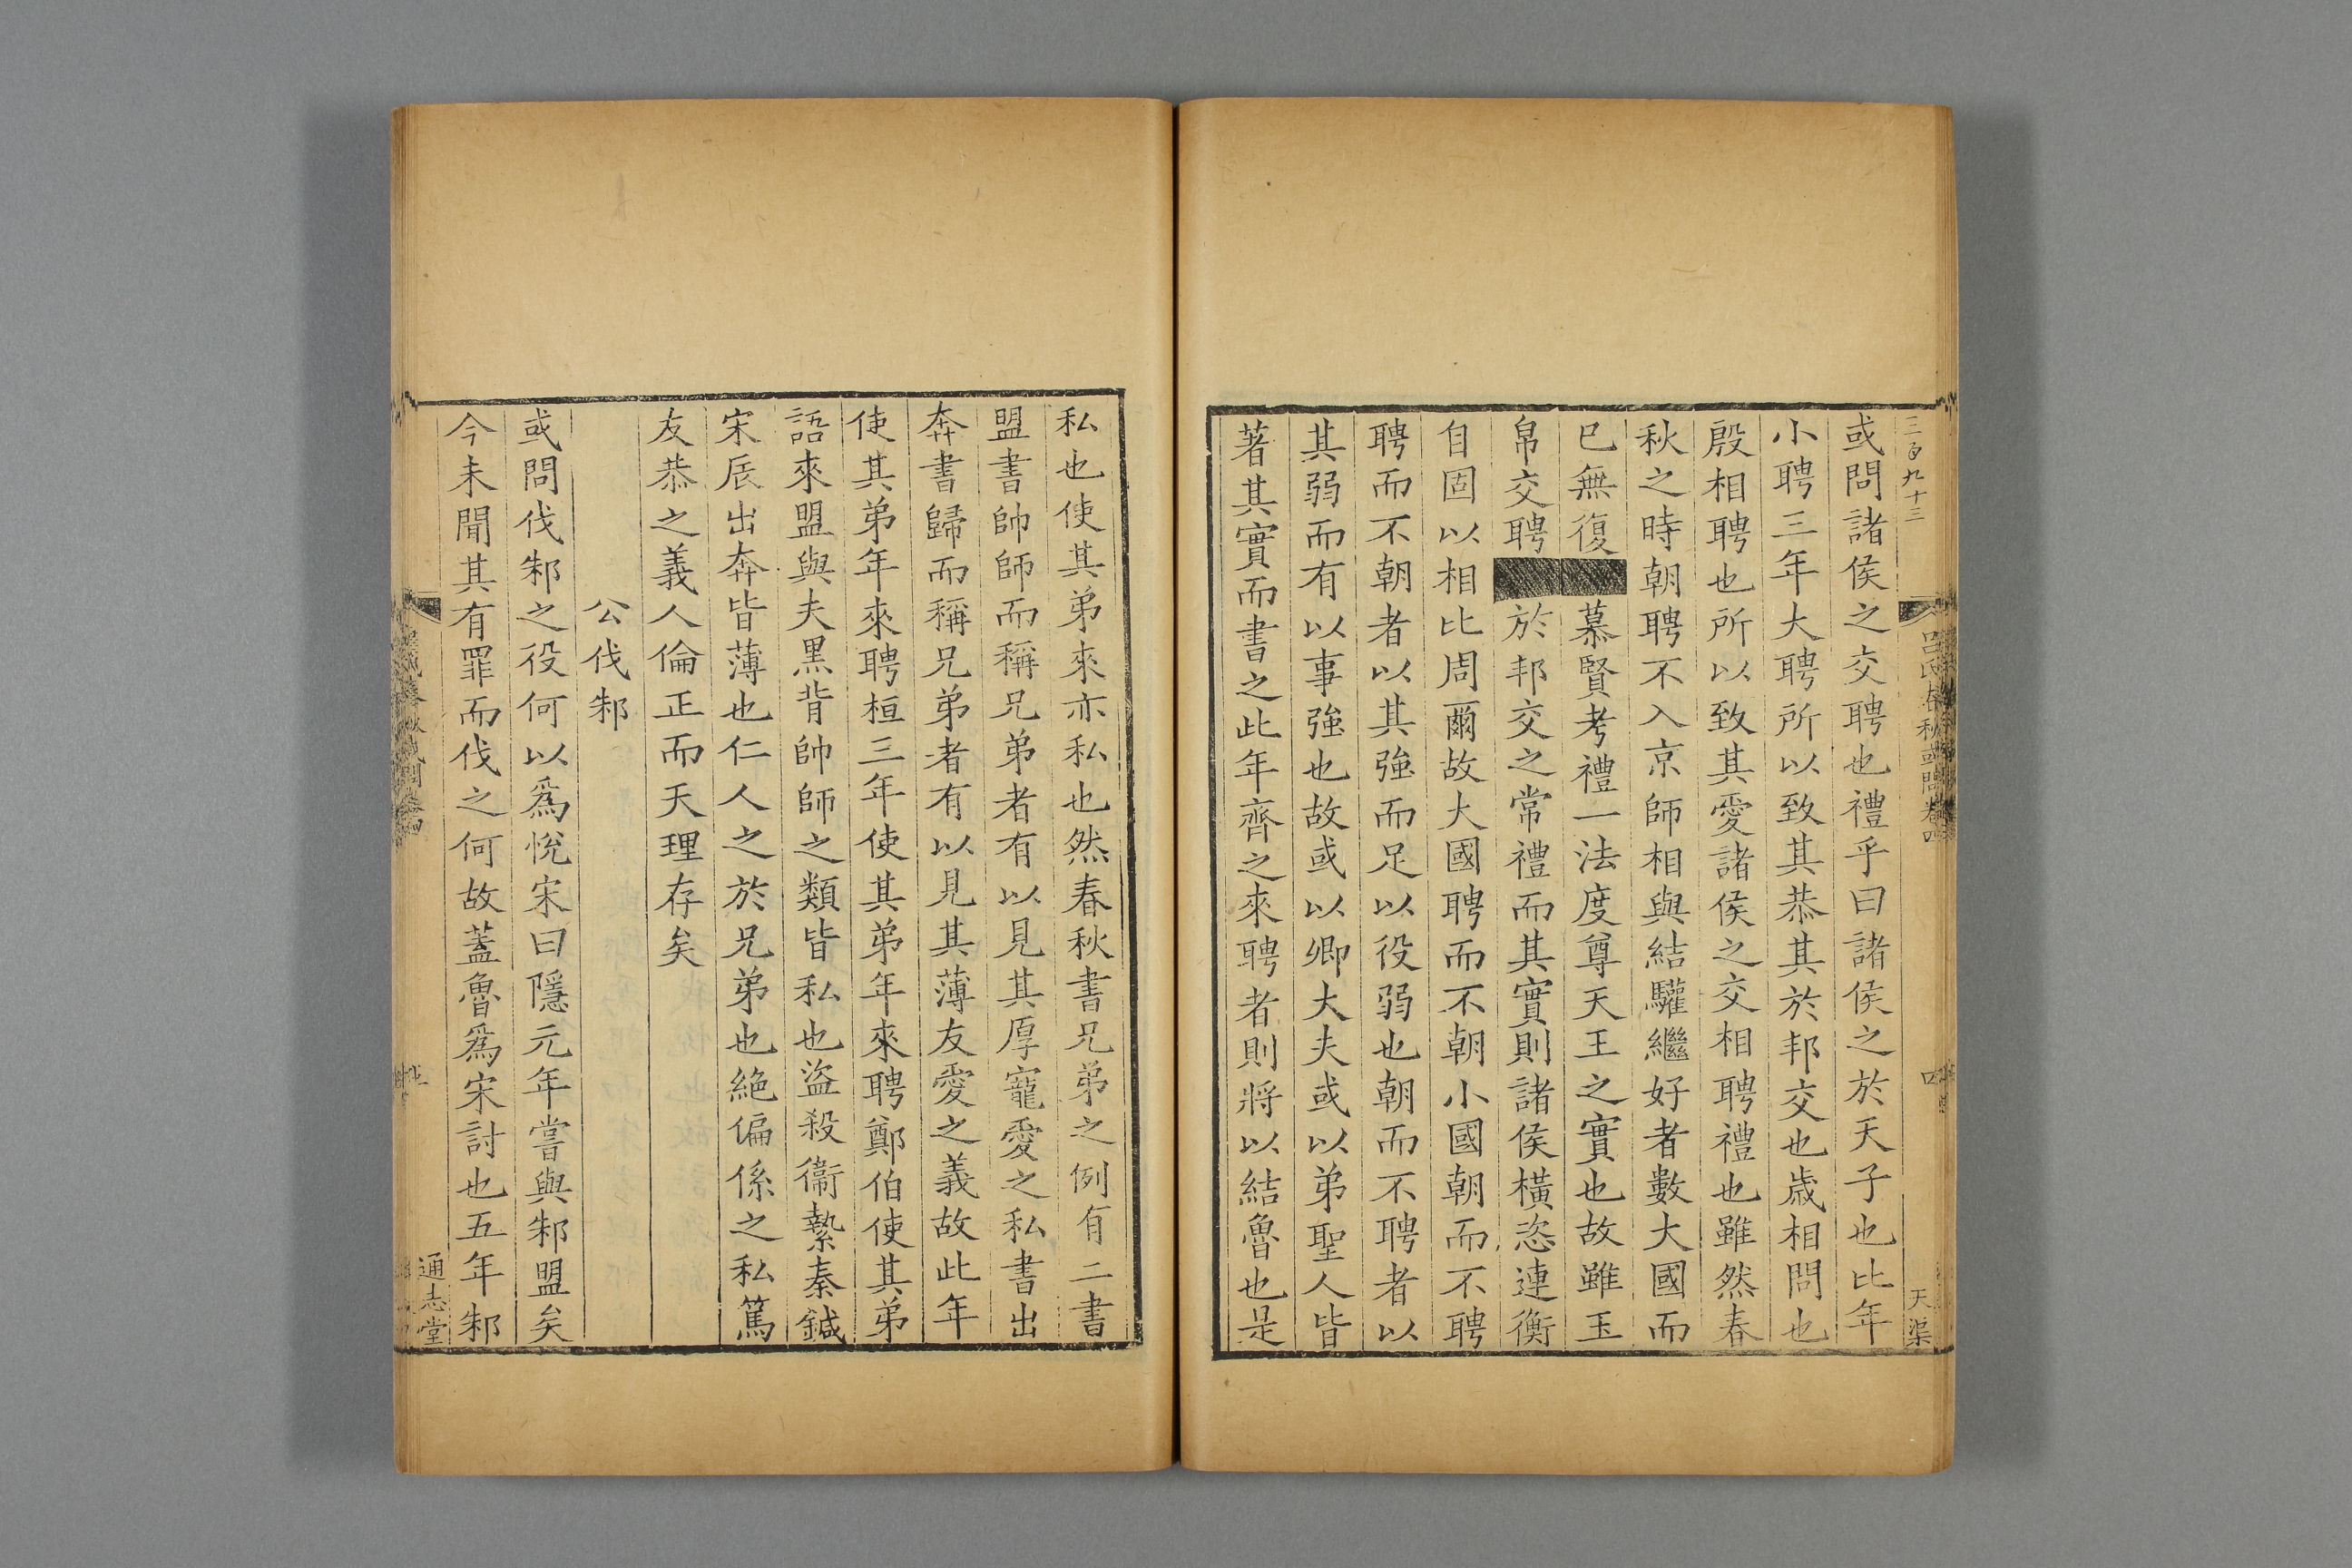 三百九十三
呂氏春秋或問卷四
四
天渠
或問諸侯之交聘也禮乎曰諸侯之於天子也比年
小聘三年大聘所以致其恭其於邦交也歲相問也
殷相聘也所以致其愛諸侯之交相聘禮也雖然春
秋之時朝聘不入京師相與結驩繼好者數大國而
已無復慕賢考禮一法度尊天王之實也故雖玉
帛交聘於邦交之常禮而其實則諸侯橫恣連衡
自固以相比周爾故大國聘而不朝小國朝而不聘
聘而不朝者以其強而足以役弱也朝而不聘者以
其弱而有以事強也故或以卿大夫或以弟聖人皆
著其實而書之此年齊之來聘者則將以結魯也是
私也使其弟來亦私也然春秋書兄弟之例有二書
盟書帥師而稱兄弟者有以見其厚寵愛之私書出
奔書歸而稱兄弟者有以見其薄友愛之義故此年
使其弟年來聘桓三年使其弟年來聘鄭伯使其弟
語來盟與夫黑背帥師之類皆私也盜殺衞縶秦鍼
宋辰出奔皆薄也仁人之於兄弟也絕偏係之私篤
友恭之義人倫正而天理存矣
公伐邾
或問伐邾之役何以爲悅宋曰隱元年嘗與邾盟矣
今未聞其有罪而伐之何故蓋魯爲宋討也五年邾
通志堂